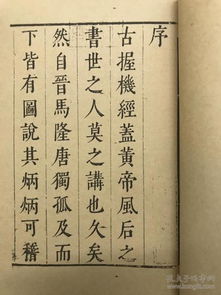 序
古握機經蓋黃帝風后之
書世之人莫之講也久矣
然自晉馬隆唐獨孤及而
下皆有圖說其炳炳可稽